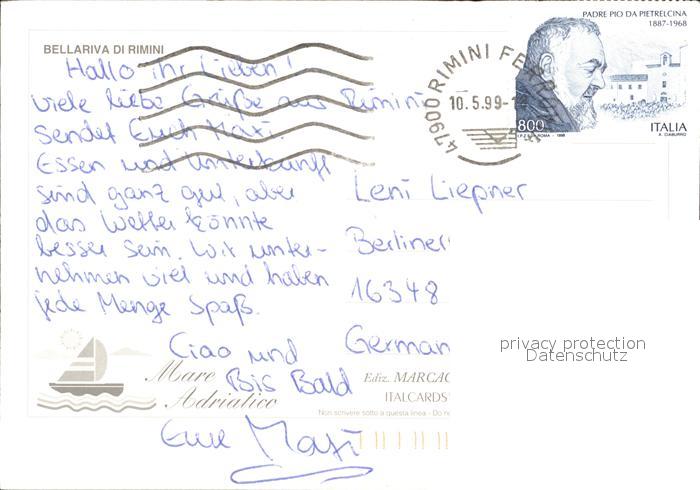 PADRE PIO DA PIETRELCINA
1887-1968
BELLARIVA DI RIMINI
47900 RIMINI FE
10.5.99-1
800
ITALIA
I.P.Z.S. ROMA - 1999
Hallo ihr Lieben!
viele liebe Grüße aus Rimini
sendet Euch Maxi.
Essen und Unterkunft
sind ganz gut, aber
das Wetter könnte
besser sein. Wir unter-
nehmen viel und haben
jede Menge Spaß.
Ciao und
Bis Bald
Eure Maxi
Leni Liepner
Berliner
16348
German
privacy protection
Datenschutz
Mare
Adriatico
Ediz. MARCAC
ITALCARDS
Non scrivere sotto a questa linea - Do no